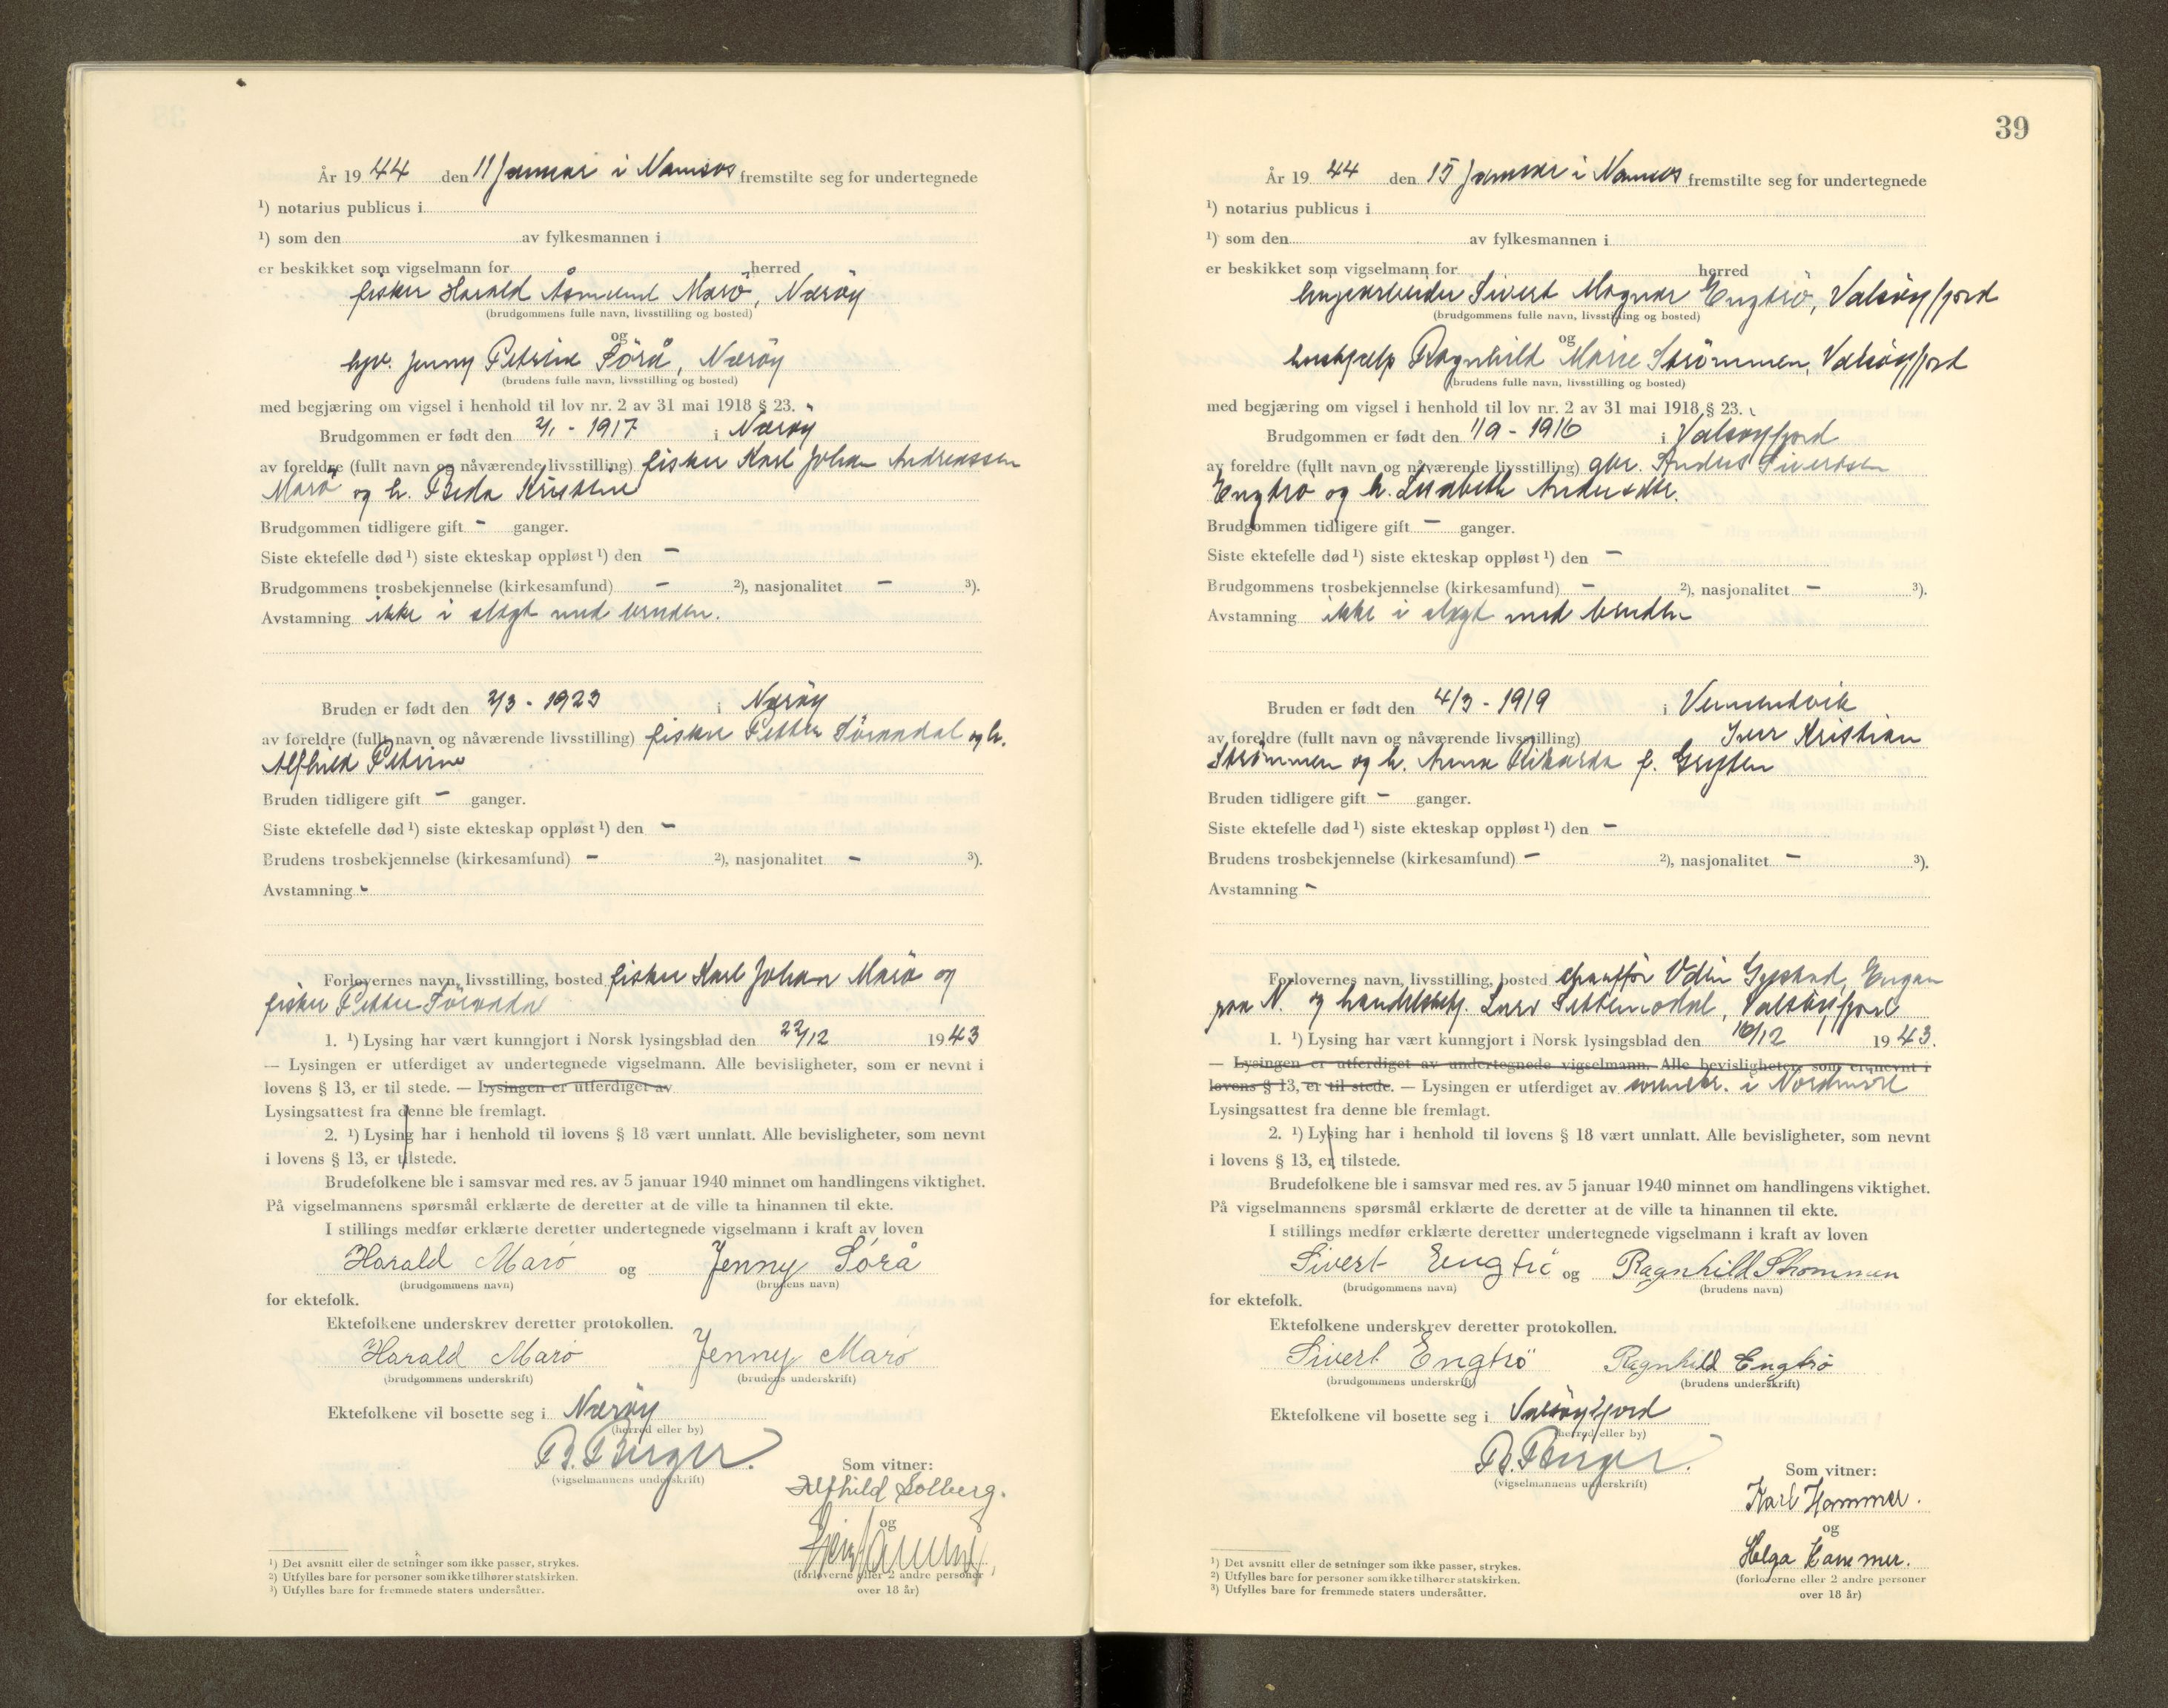 År 19 44 den 11 Januar i Namsos fremstilte seg for undertegnede
¹) notarius publicus i
¹) som den av fylkesmannen i
er beskikket som vigselmann for herred
fisker Harald Åsmund Marö, Næröy
(brudgommens fulle navn, livsstilling og bosted)
og
Jenny Petrine Sörå, Næröy
(brudens fulle navn, livsstilling og bosted)
med begjæring om vigsel i henhold til lov nr. 2 av 31 mai 1918 § 23.
Brudgommen er født den 2/1 - 1917 i Næröy
av foreldre (fullt navn og nåværende livsstilling) fisker Karl Johan Andreassen
Marö og h. Beda Kristine
Brudgommen tidligere gift - ganger.
Siste ektefelle død ¹) siste ekteskap oppløst ¹) den -
Brudgommens trosbekjennelse (kirkesamfund) - ²), nasjonalitet - ³).
Avstamning ikke i slegt med bruden.
Bruden er født den 2/3 - 1923 i Næröy
av foreldre (fullt navn og nåværende livsstilling) fisker Petter Söraadal og h.
Alfhild Petrine
Bruden tidligere gift - ganger.
Siste ektefelle død ¹) siste ekteskap oppløst ¹) den -
Brudens trosbekjennelse (kirkesamfund) - ²), nasjonalitet - ³).
Avstamning -
Forlovernes navn, livsstilling, bosted fisker Karl Johan Marö og
fisker Petter Söraadal
1. ¹) Lysing har vært kunngjort i Norsk lysingsblad den 22/12 19 43
— Lysingen er utferdiget av undertegnede vigselmann. Alle bevisligheter, som er nevnt i
lovens § 13, er til stede. — Lysingen er utferdiget av
Lysingsattest fra denne ble fremlagt.
2. ¹) Lysing har i henhold til lovens § 18 vært unnlatt. Alle bevisligheter, som nevnt
i lovens § 13, er tilstede.
Brudefolkene ble i samsvar med res. av 5 januar 1940 minnet om handlingens viktighet.
På vigselmannens spørsmål erklærte de deretter at de ville ta hinannen til ekte.
I stillings medfør erklærte deretter undertegnede vigselmann i kraft av loven
Harald Marö og Jenny Sörå
(brudgommens navn) (brudens navn)
for ektefolk.
Ektefolkene underskrev deretter protokollen.
Harald Marö Jenny Marö
(brudgommens underskrift) (brudens underskrift)
Ektefolkene vil bosette seg i Næröy
(herred eller by)
(vigselmannens underskrift)
Som vitner:
Alfhild Solberg.
og
(forloverne eller 2 andre personer
over 18 år)
¹) Det avsnitt eller de setninger som ikke passer, strykes.
²) Utfylles bare for personer som ikke tilhører statskirken.
³) Utfylles bare for fremmede staters undersåtter.
39
År 19 44 den 15 Januar i Namsos fremstilte seg for undertegnede
¹) notarius publicus i
¹) som den av fylkesmannen i
er beskikket som vigselmann for herred
Sivert Magnar Engtrö, Valsöyfjord
(brudgommens fulle navn, livsstilling og bosted)
og
hushjelp Ragnhild Marie Strömmen, Valsöyfjord
(brudens fulle navn, livsstilling og bosted)
med begjæring om vigsel i henhold til lov nr. 2 av 31 mai 1918 § 23.
Brudgommen er født den 1/9 - 1916 i Valsöyfjord
av foreldre (fullt navn og nåværende livsstilling) gbr. Anders Sivertsen
Engtrö og h. Lisabeth Andersdtr.
Brudgommen tidligere gift - ganger.
Siste ektefelle død ¹) siste ekteskap oppløst ¹) den -
Brudgommens trosbekjennelse (kirkesamfund) - ²), nasjonalitet - ³).
Avstamning ikke i slegt med bruden
Bruden er født den 4/3 - 1919 i Vemundvik
av foreldre (fullt navn og nåværende livsstilling) Iver Kristian
Strömmen og h. Anna Rikarda f. Gryten
Bruden tidligere gift - ganger.
Siste ektefelle død ¹) siste ekteskap oppløst ¹) den -
Brudens trosbekjennelse (kirkesamfund) - ²), nasjonalitet - ³).
Avstamning -
Forlovernes navn, livsstilling, bosted chaufför Odin Engan
og Lars Settemsdal, Valsöyfjord
1. ¹) Lysing har vært kunngjort i Norsk lysingsblad den 16/12 19 43.
— Lysingen er utferdiget av undertegnede vigselmann. Alle bevisligheter, som er nevnt i
lovens § 13, er til stede. — Lysingen er utferdiget av sorenskr. i Nordmöre
Lysingsattest fra denne ble fremlagt.
2. ¹) Lysing har i henhold til lovens § 18 vært unnlatt. Alle bevisligheter, som nevnt
i lovens § 13, er tilstede.
Brudefolkene ble i samsvar med res. av 5 januar 1940 minnet om handlingens viktighet.
På vigselmannens spørsmål erklærte de deretter at de ville ta hinannen til ekte.
I stillings medfør erklærte deretter undertegnede vigselmann i kraft av loven
Sivert Engtrö og Ragnhild Strommen
(brudgommens navn) (brudens navn)
for ektefolk.
Ektefolkene underskrev deretter protokollen.
Sivert Engtrö Ragnhild Engtrö
(brudgommens underskrift) (brudens underskrift)
Ektefolkene vil bosette seg i Valsöyfjord
(herred eller by)
(vigselmannens underskrift)
Som vitner:
Karl Hammer.
og
Helga Hammer.
(forloverne eller 2 andre personer
over 18 år)
¹) Det avsnitt eller de setninger som ikke passer, strykes.
²) Utfylles bare for personer som ikke tilhører statskirken.
³) Utfylles bare for fremmede staters undersåtter.